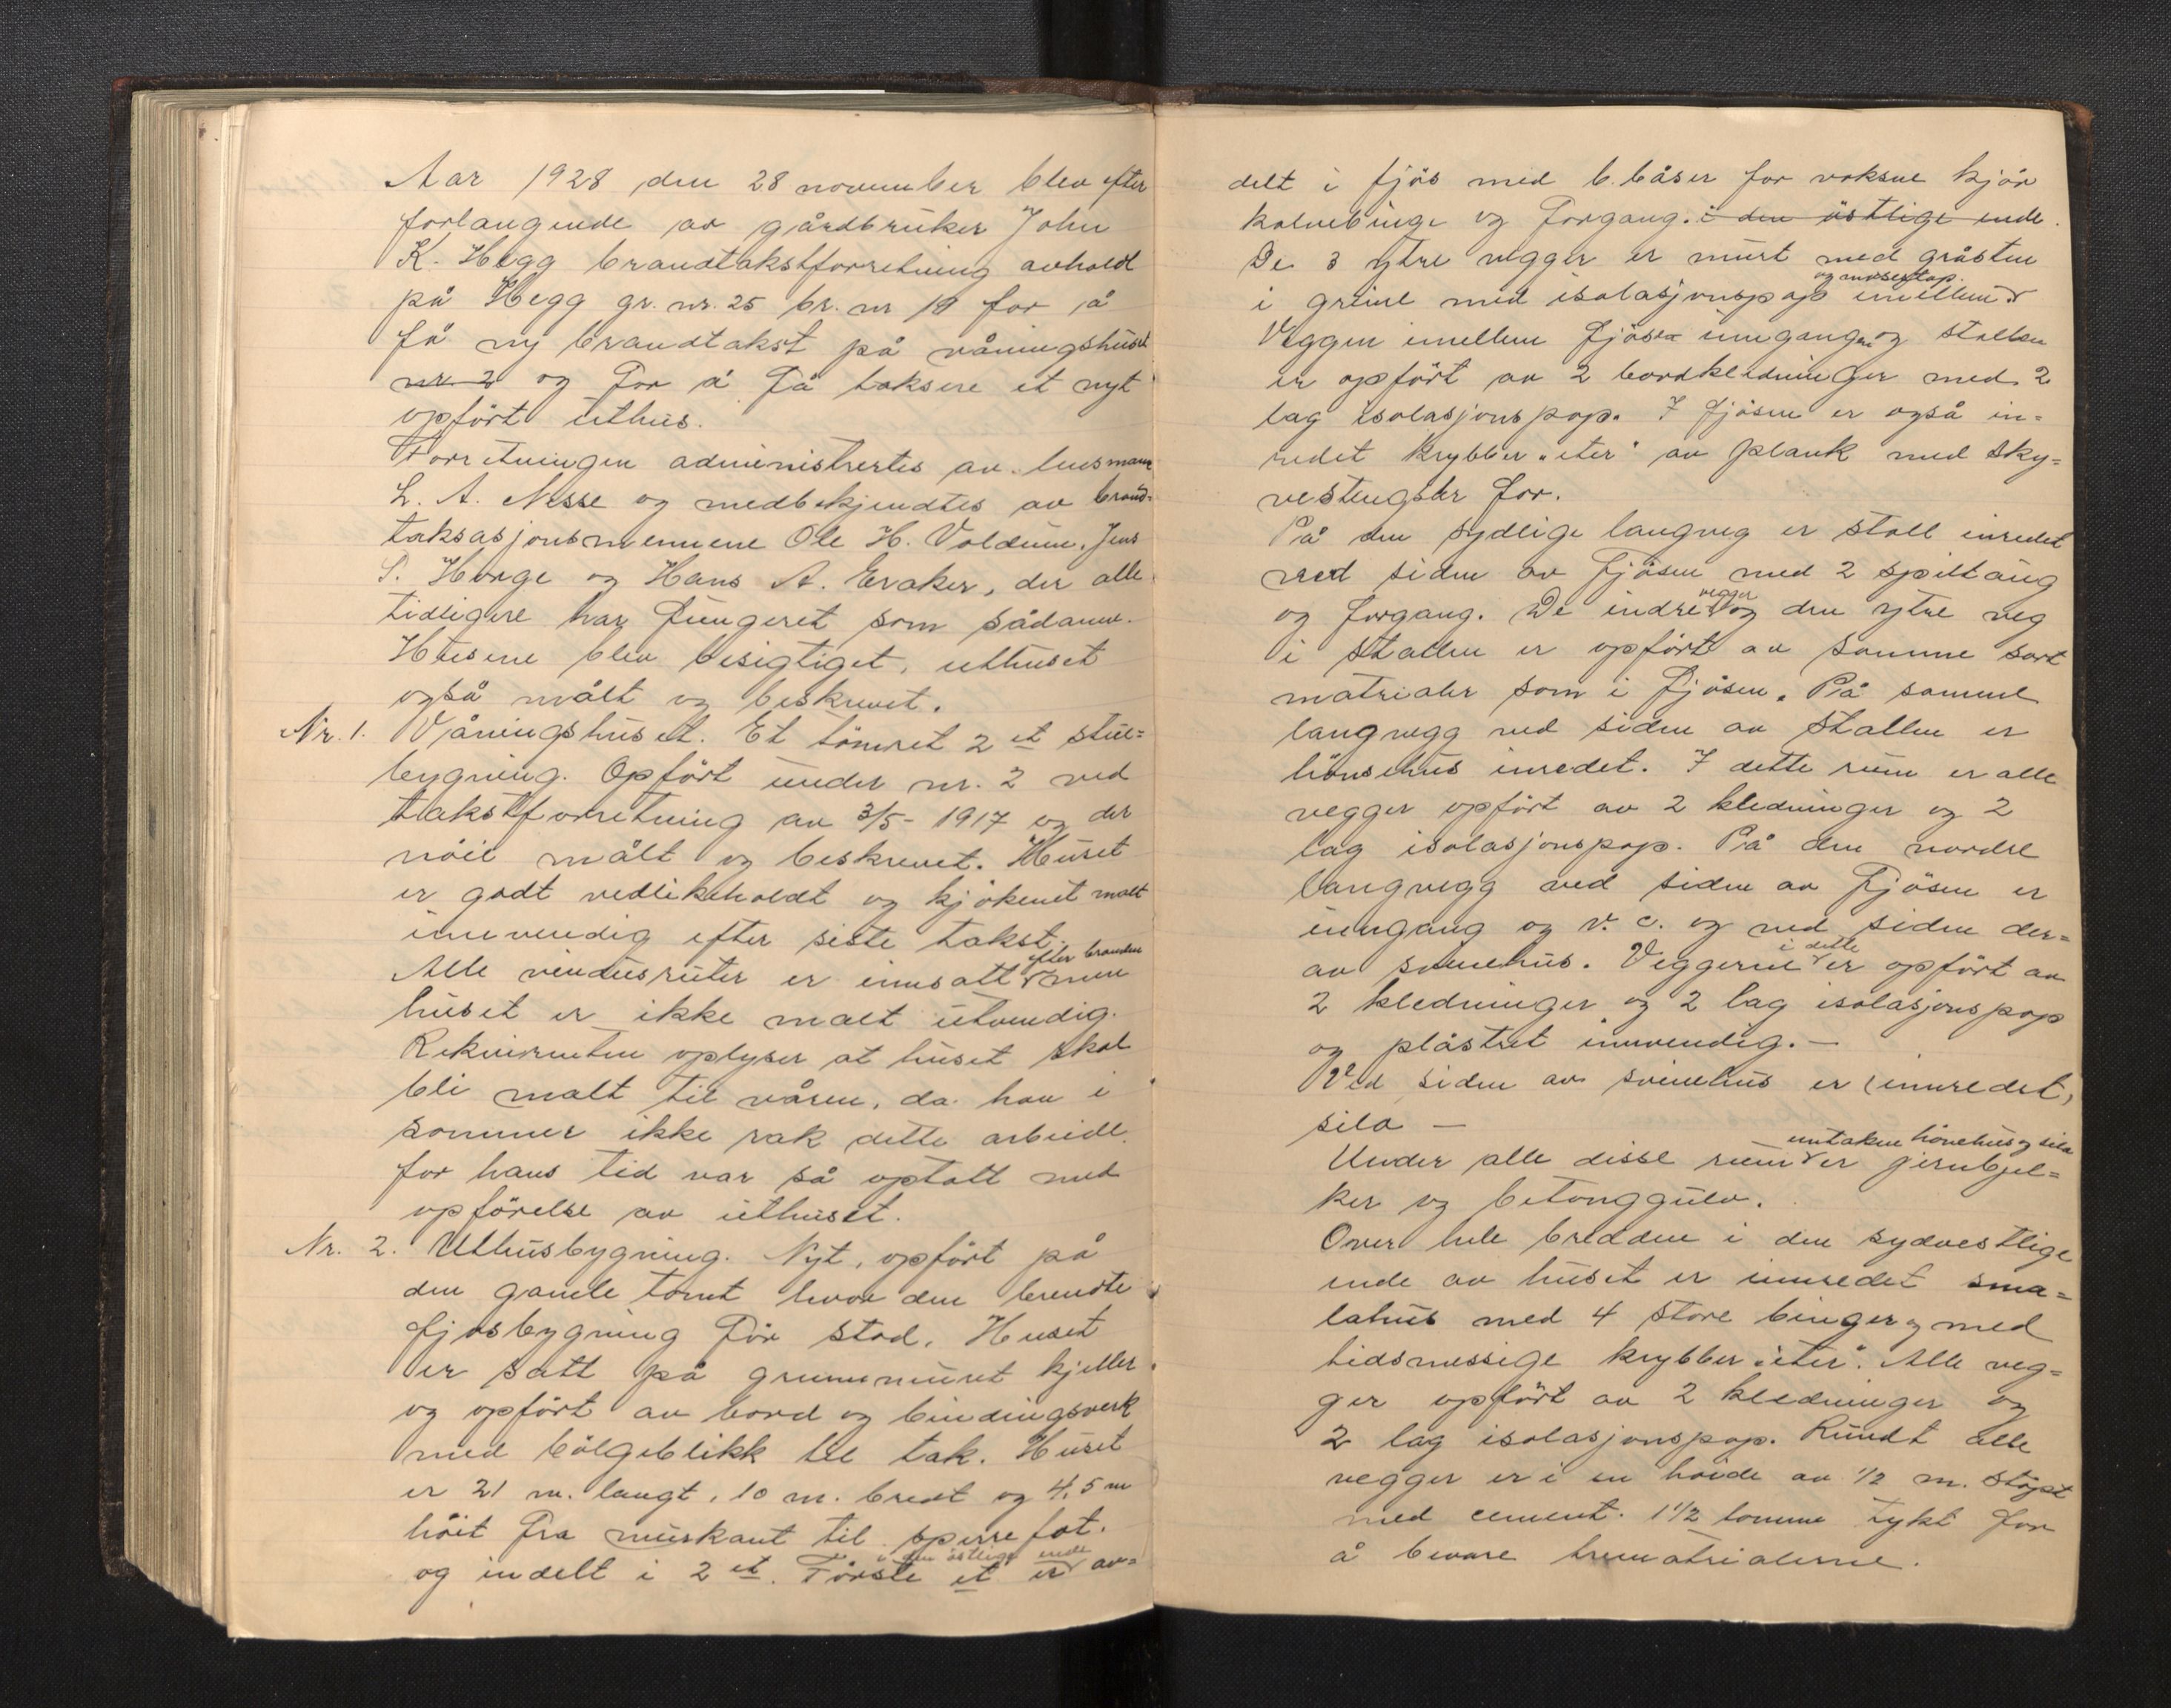 Aar 1928 den 28 november blev efter
forlangende av gårdbruker John
K. Hegg brandtakstforretning avhold
på Hegg gr. nr. 25 br. nr 19 for å
få ny brandtakst på våningshuset
nr. 2 og for å få taksere et nyt
opført uthus.
Forretningen administrertes av lensmann
L. A. Nesse og medbekjendtes av brand-
taksasjonsmennene Ole H. Voldum, Jens
S. Horge og Hans A. Eraker, der alle
tidligere har fungeret som sådanne.
Husene blev besigtiget, uthuset
også målt og beskrevet.
Nr. 1. Våningshuset. Et tømret 2 et stue-
bygning. Opført under nr. 2 ved
takstforretning av 3/5- 1917 og der
nöie målt og beskrevet. Huset
er godt vedlikeholdt og kjökenet malt
innvendig efter siste takst.
efter branden
Alle vindusruter er innsatt men
huset er ikke malt utvendig.
Rekvirenten oplyser at huset skal
bli malt til våren, da han i
sommer ikke rak dette arbeide
for hans tid var så optatt med
opförelse av uthuset.
Nr. 2. Uthusbygning. Nyt, opfört på
den gamle tomt hvor den brendte
fjösbygning för stod. Huset
er satt på grunnmuret kjeller
og opfört av bord og bindingsverk
med bölgeblikk til tak. Huset
er 21 m. langt, 10 m. bredt og 4,5 m
höit fra murkant til sperrefot.
i den östlige ende
og indelt i 2 et. Förste et er av-
delt i fjös med 6 båser for voksne kjör
kalvebinge og forgang. i den östlige ende.
De 3 ytre vegger er murt med gråsten
og mosestap.
i grunn med isolasjonspap imellem
Veggen imellem fjösen inngangen og stallen
er opfört av 2 bordkledninger med 2
lag isolasjonspap. I fjösen er også in-
redet krybber "eter" av plank med sky-
vestengsler for.
På den sydlige langveg er stall inredet
ved siden av fjösen med 2 spiltaug
vegger
og forgang. De indre og den ytre veg
i stallen er opfört av samme sort
matrialer som i fjösen. På samme
langvegg ved siden av stallen er
hönsehus inredet. I dette rum er alle
vegger opfört av 2 kledninger og 2
lag isolasjonspap. På den nordre
langvegg ved siden av fjösen er
inngang og v. c. og ved siden der-
i dette
av svinehus. Veggerne er opfört av
2 kledninger og 2 lag isolasjonspap
og plåstret innvendig. —
Ved siden av svinehus er innredet,
silo —
untaken hönehus og silo
Under alle disse rum er jernbjel-
ker og betonggulv.
Over hele bredden i den sydvestlige
ende av huset er innredet sma-
lahus med 4 store binger og med
tidsmessige krybber "eter". Alle veg-
ger opfört av 2 kledninger og
2 lag isolasjonspap. Rundt alle
vegger er i en höide av 1/2 m. stöpt
med cement. 1 1/2 tomme tykt for
å bevare trematrialerne.